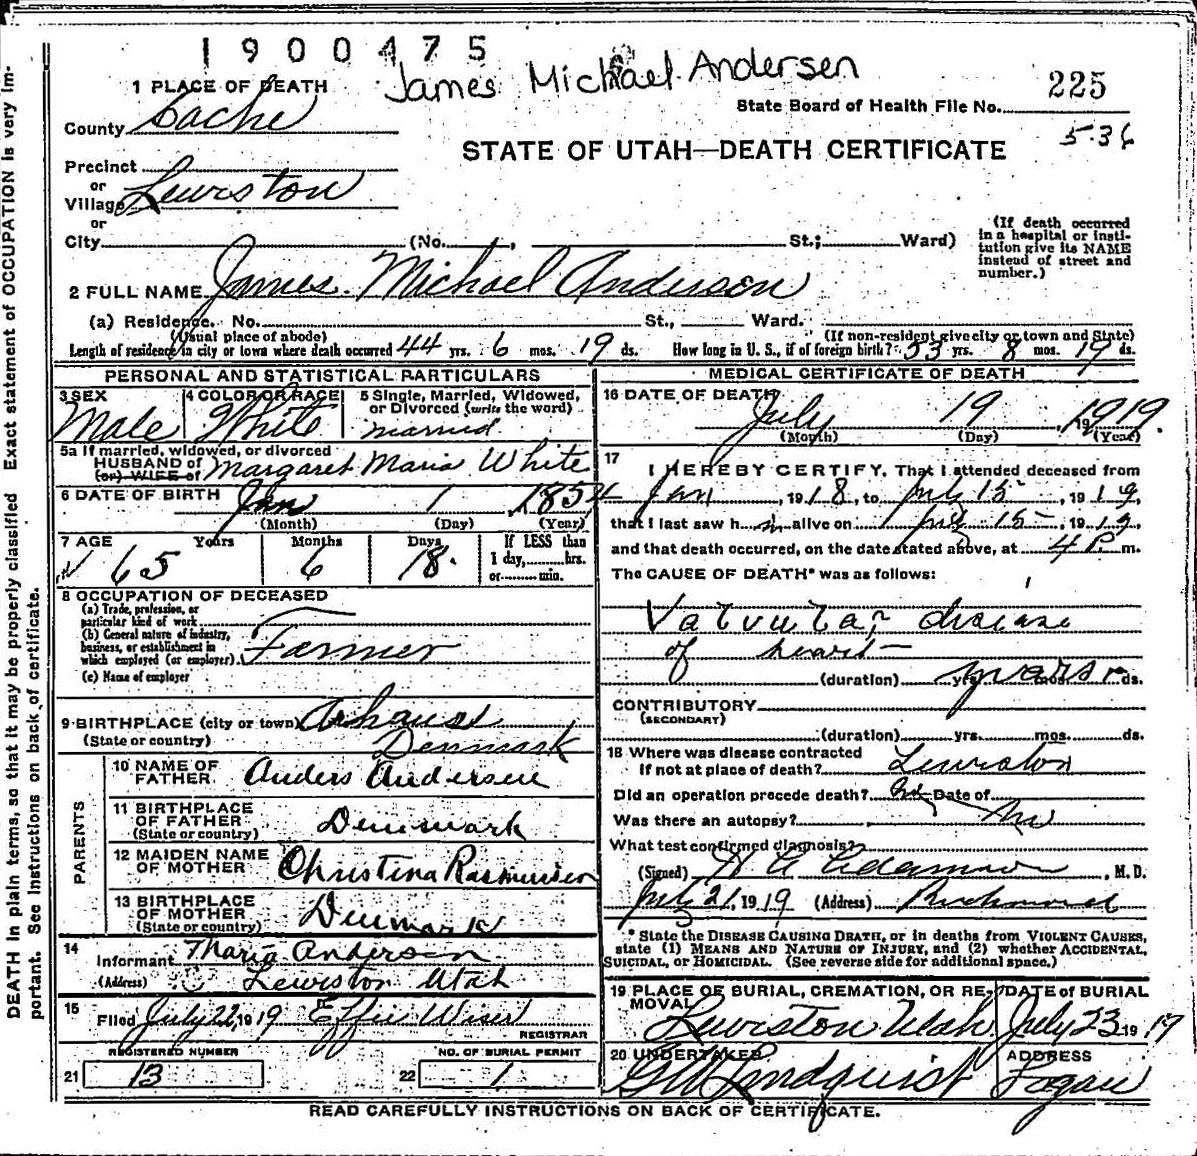 1900475
James Michael Andersen
225
State Board of Health File No.
5-36
1 PLACE OF DEATH
County Cache
STATE OF UTAH—DEATH CERTIFICATE
Precinct
or
Village Lewiston
or
City (No. , St.; Ward)
(If death occurred in a hospital or institution give its NAME instead of street and number.)
2 FULL NAME James Michael Anderson
(a) Residence. No. St., Ward.
(Usual place of abode) (If non-resident give city or town and State)
Length of residence in city or town where death occurred 44 yrs. 6 mos. 19 ds. How long in U. S., if of foreign birth? 53 yrs. 8 mos. 19 ds.
PERSONAL AND STATISTICAL PARTICULARS
3 SEX
Male
4 COLOR OR RACE
White
5 Single, Married, Widowed,
or Divorced (write the word)
married
5a If married, widowed, or divorced
HUSBAND of
(or) WIFE of Margaret Maria White
6 DATE OF BIRTH
Jan 1, 1854
(Month) (Day) (Year)
7 AGE Years Months Days
65 6 18
If LESS than
1 day, hrs.
or min.
8 OCCUPATION OF DECEASED
(a) Trade, profession, or
particular kind of work
(b) General nature of industry,
business, or establishment in
which employed (or employer) Farmer
(c) Name of employer
9 BIRTHPLACE (city or town) Arhaus
(State or country) Denmark
PARENTS
10 NAME OF
FATHER Anders Andersen
11 BIRTHPLACE
OF FATHER
(State or country) Denmark
12 MAIDEN NAME
OF MOTHER Christina Rasmussen
13 BIRTHPLACE
OF MOTHER
(State or country) Denmark
14
Informant Maria Andersen
(Address) Lewiston Utah
15
Filed July 22, 1919 Effie Wiser
REGISTRAR
REGISTERED NUMBER
21 13
NO. OF BURIAL PERMIT
22 1
MEDICAL CERTIFICATE OF DEATH
16 DATE OF DEATH
July 19, 1919.
(Month) (Day) (Year)
17
I HEREBY CERTIFY, That I attended deceased from
Jan, 1918, to July 15, 1919,
that I last saw h im alive on July 15, 1919,
and that death occurred, on the date stated above, at 4 P. m.
The CAUSE OF DEATH* was as follows:
Valvular disease
of heart
(duration) years yrs. mos. ds.
CONTRIBUTORY
(SECONDARY)
(duration) yrs. mos. ds.
18 Where was disease contracted
if not at place of death? Lewiston
Did an operation precede death? No Date of
Was there an autopsy? No
What test confirmed diagnosis?
(Signed) Adamson, M.D.
July 21, 1919 (Address) Richmond
* State the DISEASE CAUSING DEATH, or in deaths from VIOLENT CAUSES,
state (1) MEANS AND NATURE OF INJURY, and (2) whether ACCIDENTAL,
SUICIDAL, or HOMICIDAL. (See reverse side for additional space.)
19 PLACE OF BURIAL, CREMATION, OR RE-
MOVAL
Lewiston Utah
DATE of BURIAL
July 23 1919
20 UNDERTAKER
Lindquist
ADDRESS
Logan
READ CAREFULLY INSTRUCTIONS ON BACK OF CERTIFICATE.
DEATH in plain terms, so that it may be properly classified Exact statement of OCCUPATION is very Im-
portant. See Instructions on back of certificate.